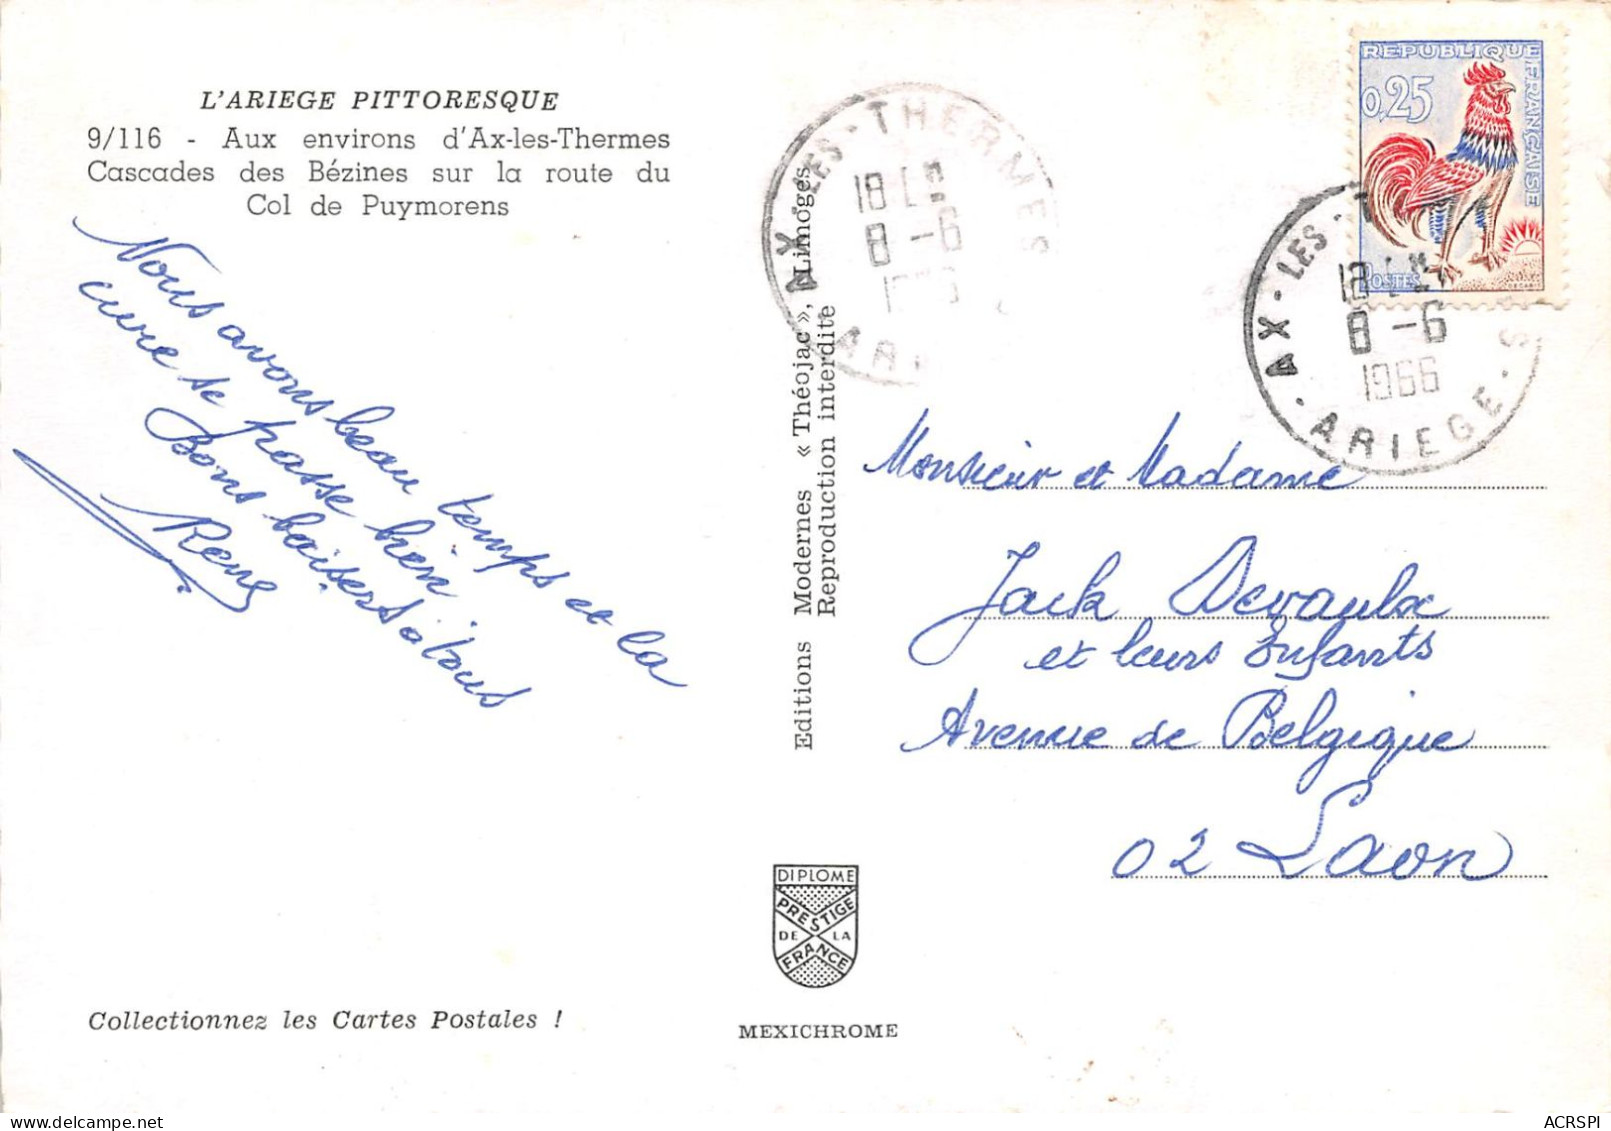 L'ARIEGE PITTORESQUE
9/116 - Aux environs d'Ax-les-Thermes
Cascades des Bézines sur la route du
Col de Puymorens
Nous avons beau temps et la
cure se passe bien
Bons baisers à tous
René
Collectionnez les Cartes Postales !
Editions Modernes « Théojac », Limoges
Reproduction interdite
DIPLOME
PRESTIGE
DE LA
FRANCE
MEXICHROME
AX-LES-THERMES
18
8-6
ARI
REPUBLIQUE FRANÇAISE
0,25
POSTES
AX-LES-T
18
8-6
1966
ARIEGE
Monsieur et Madame
Jack Devaulx
et leurs Enfants
Avenue de Belgique
02 Laon
ACRSPI